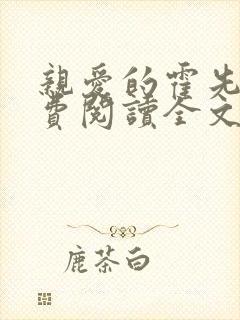 親愛的霍先
費閱讀全文
鹿茶白